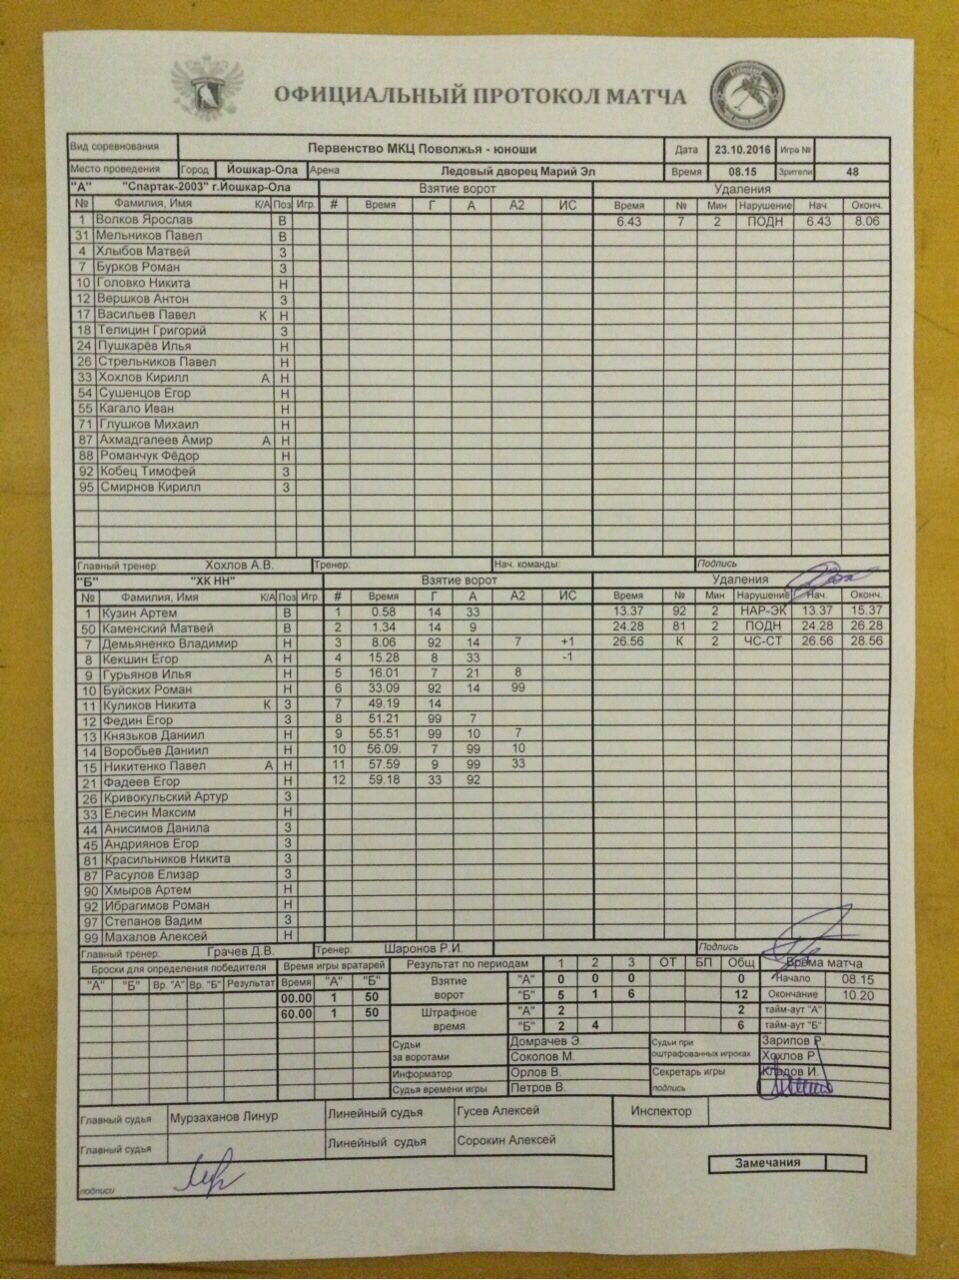 ОФИЦИАЛЬНЫЙ ПРОТОКОЛ МАТЧА
Вид соревнования Первенство МКЦ Поволжья - юноши Дата 23.10.2016 Игра №
Место проведения Город Йошкар-Ола Арена Ледовый дворец Марий Эл Время 08.15 Зрители 48
"А" "Спартак-2003" г.Йошкар-Ола Взятие ворот Удаления
№ Фамилия, Имя К/А Поз Игр. # Время Г А А2 ИС Время № Мин Нарушение Нач. Оконч.
1 Волков Ярослав В 6.43 7 2 ПОДН 6.43 8.06
31 Мельников Павел В
4 Хлыбов Матвей З
7 Бурков Роман З
10 Головко Никита Н
12 Вершков Антон З
17 Васильев Павел К Н
18 Телицин Григорий З
24 Пушкарёв Илья Н
26 Стрельников Павел Н
33 Хохлов Кирилл А Н
54 Сушенцов Егор Н
55 Кагало Иван Н
71 Глушков Михаил Н
87 Ахмадгалеев Амир А Н
88 Романчук Фёдор Н
92 Кобец Тимофей З
95 Смирнов Кирилл З
Главный тренер: Хохлов А.В. Тренер: Нач. команды: Подпись
"Б" "ХК НН" Взятие ворот Удаления
№ Фамилия, Имя К/А Поз Игр. # Время Г А А2 ИС Время № Мин Нарушение Нач. Оконч.
1 Кузин Артем В 1 0.58 14 33 13.37 92 2 НАР-ЭК 13.37 15.37
50 Каменский Матвей В 2 1.34 14 9 24.28 81 2 ПОДН 24.28 26.28
7 Демьяненко Владимир Н 3 8.06 92 14 7 +1 26.56 К 2 ЧС-СТ 26.56 28.56
8 Кекшин Егор А Н 4 15.28 8 33 -1
9 Гурьянов Илья Н 5 16.01 7 21 8
10 Буйских Роман Н 6 33.09 92 14 99
11 Куликов Никита К З 7 49.19 14
12 Федин Егор З 8 51.21 99 7
13 Князьков Даниил Н 9 55.51 99 10 7
14 Воробьев Даниил Н 10 56.09. 7 99 10
15 Никитенко Павел А Н 11 57.59 9 99 33
21 Фадеев Егор Н 12 59.18 33 92
26 Кривокульский Артур З
33 Елесин Максим Н
44 Анисимов Данила З
45 Андриянов Егор З
81 Красильников Никита З
87 Расулов Елизар З
90 Хмыров Артем Н
92 Ибрагимов Роман Н
97 Степанов Вадим З
99 Махалов Алексей Н
Главный тренер: Грачев Д.В. Тренер: Шаронов Р.И. Подпись
Броски для определения победителя Время игры вратарей Результат по периодам 1 2 3 ОТ БП Общ Время матча
"А" "Б" Вр. "А" Вр. "Б" Результат Время "А" "Б" Взятие ворот "А" 0 0 0 0 Начало 08.15
00.00 1 50 "Б" 5 1 6 12 Окончание 10.20
60.00 1 50 Штрафное время "А" 2 2 тайм-аут "А"
"Б" 2 4 6 тайм-аут "Б"
Судьи за воротами Домрачев Э. Судьи при оштрафованных игроках Зарипов Р.
Соколов М. Хохлов Р.
Информатор Орлов В. Секретарь игры Кладов И.
Судья времени игры Петров В. подпись
Главный судья Мурзаханов Линур Линейный судья Гусев Алексей Инспектор
Главный судья Линейный судья Сорокин Алексей
подписи Замечания